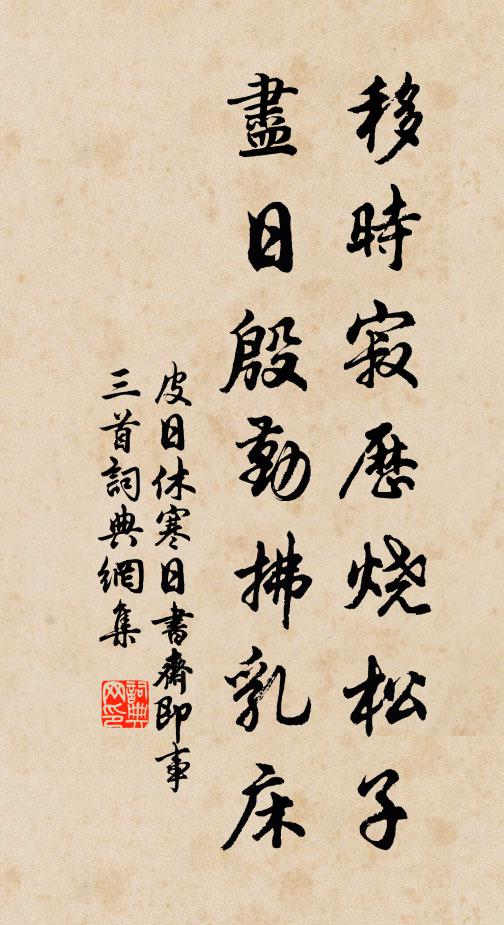 移時寂歷燒松子
盡日殷勤拂乳床
皮日休寒日書齋即事
三首詞典網集
詞典網印